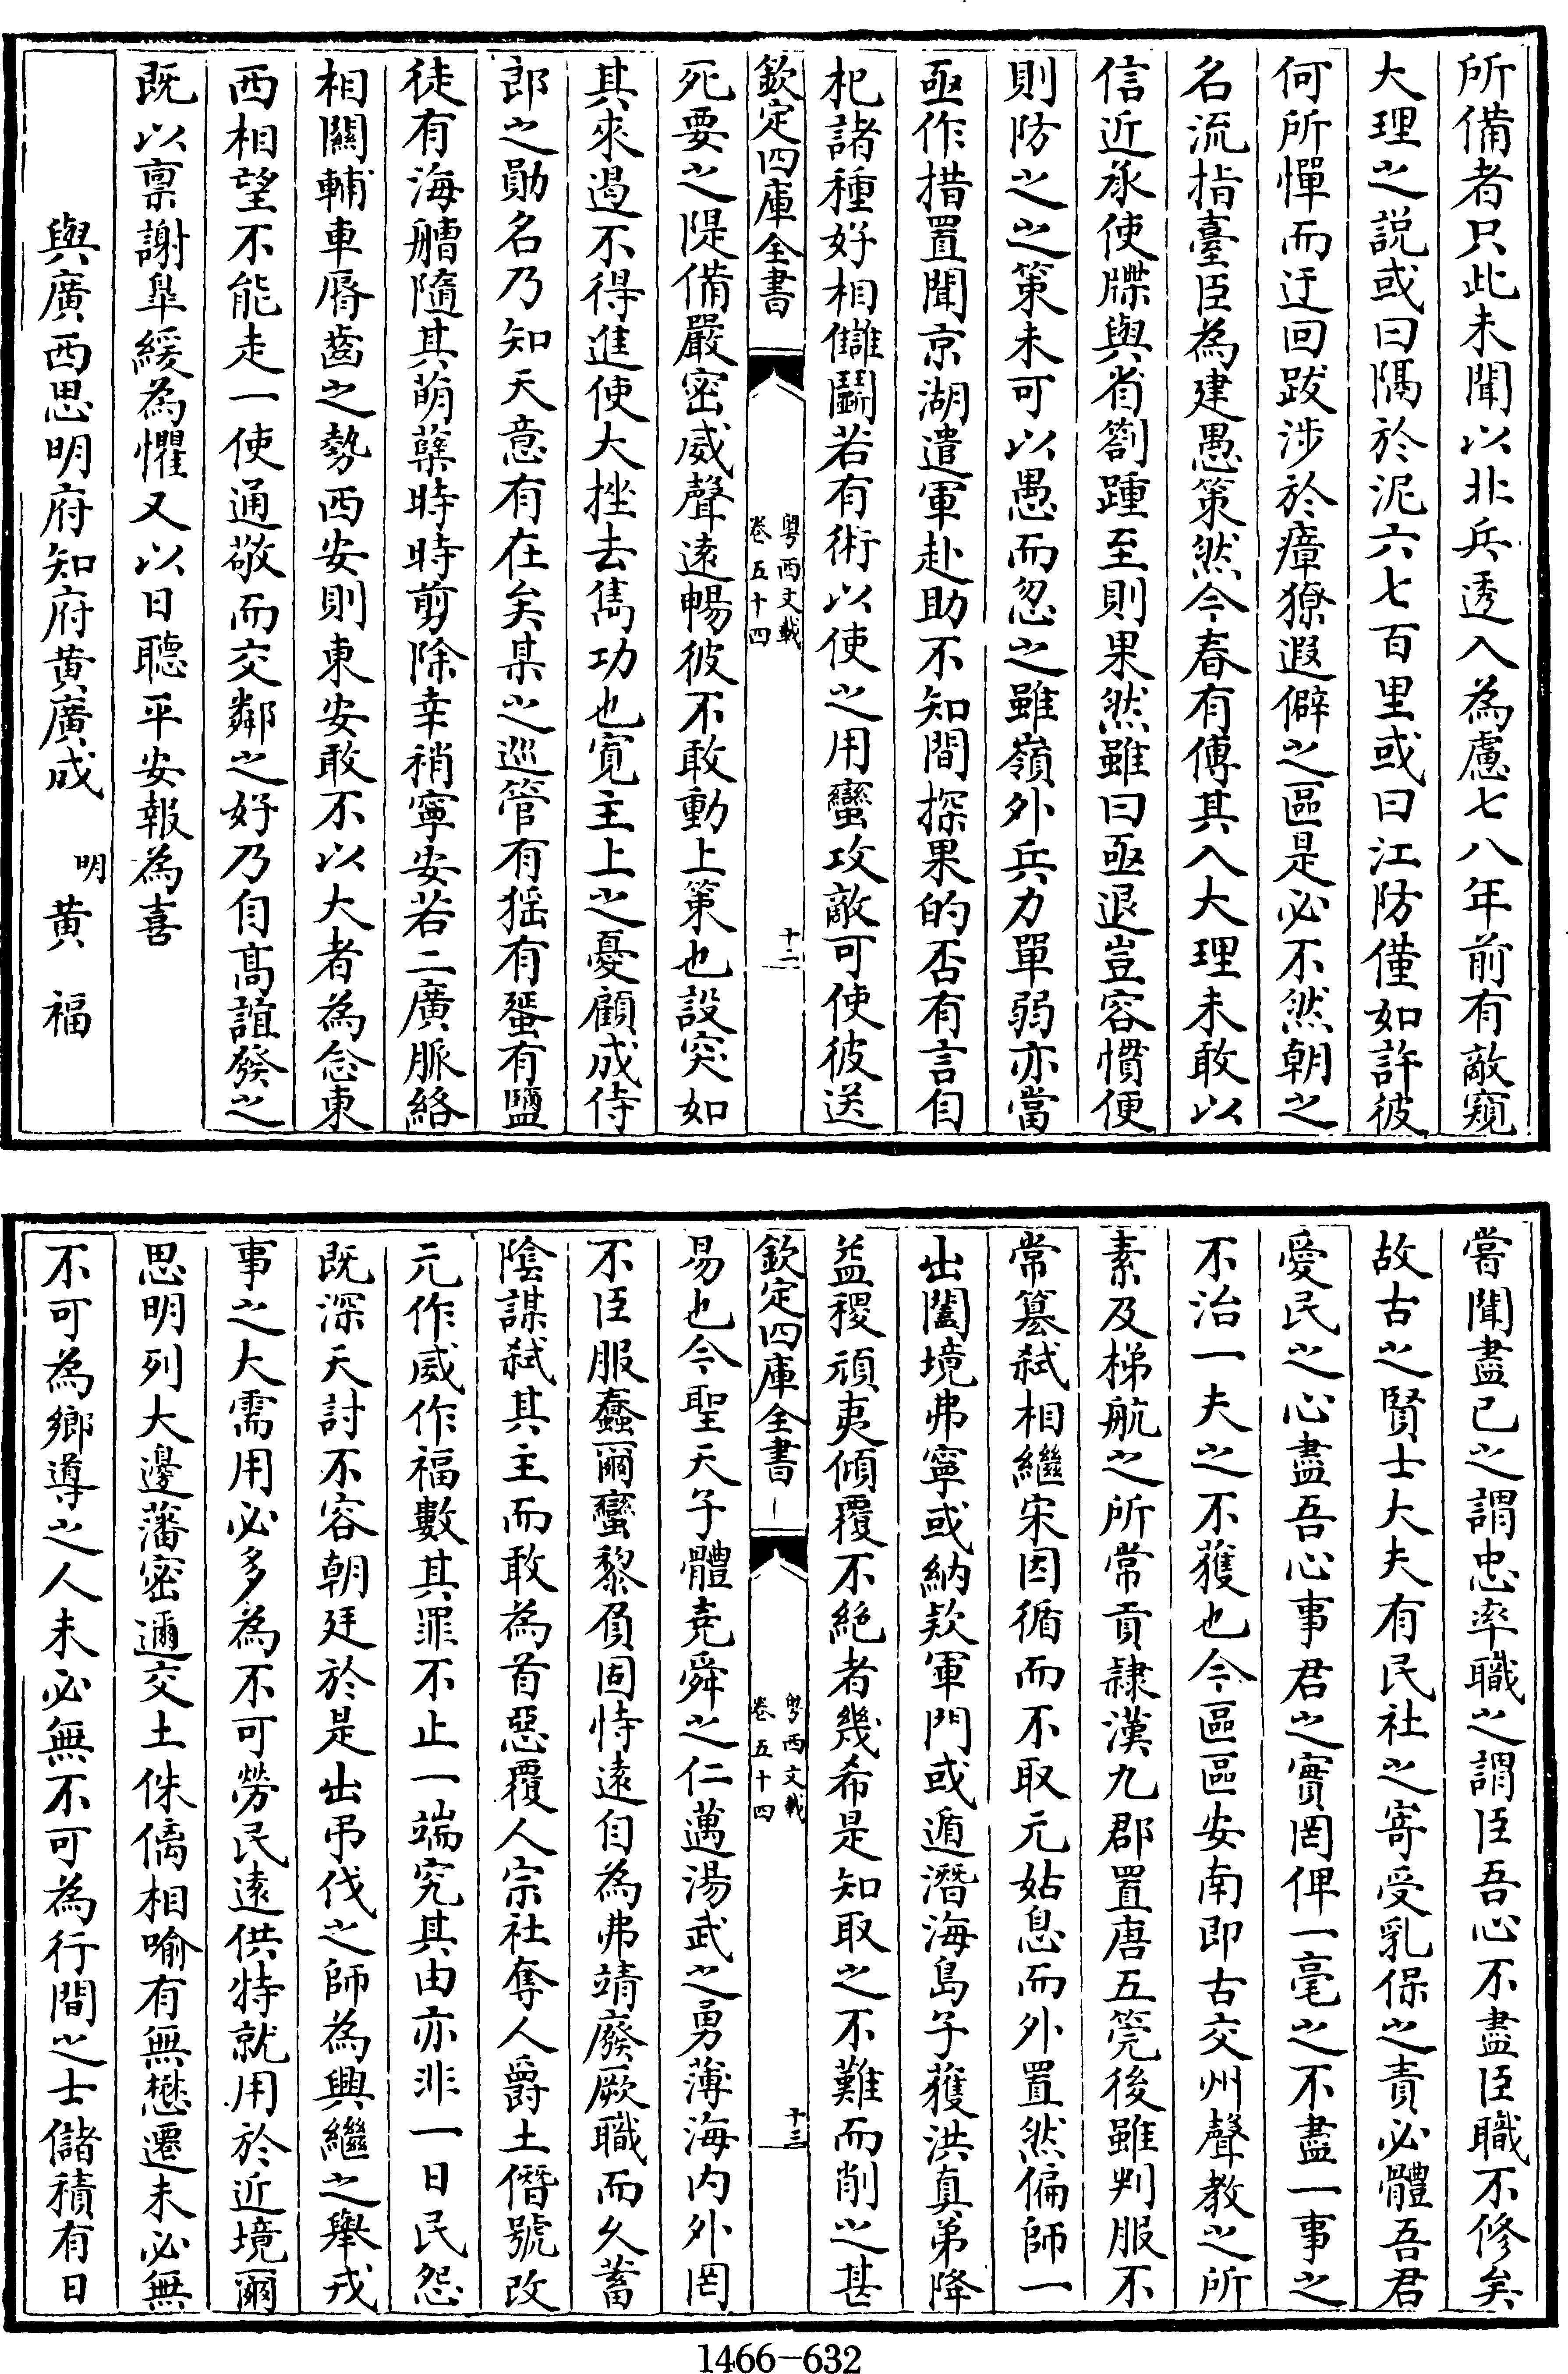 所備者只此未聞以北兵透入為慮七八年前有敵窺
大理之説或曰隔於泥六七百里或曰江防僅如許彼
何所憚而迂回跋涉於瘴獠遐僻之區是必不然朝之
名流指臺臣為建愚策然今春有傳其入大理未敢以
信近承使牒與省劄踵至則果然雖曰亟退豈容慣便
則防之之策未可以愚而忽之雖嶺外兵力單弱亦當
亟作措置聞京湖遣軍赴助不知間探果的否有言自
杞諸種好相讎鬭若有術以使之用蠻攻敵可使彼送
欽定四庫全書
粤西文載
卷五十四
十二
死要之隄備嚴密威聲遠暢彼不敢動上第也設突如
其來遏不得進使大挫去雋功也寛主上之憂顧成侍
郎之勛名乃知天意有在矣某之巡管有猺有蜑有鹽
徒有海艚隨其萌蘖時時剪除幸稍寧安若二廣脈絡
相關輔車脣齒之勢西安則東安敢不以大者為念東
西相望不能走一使通敬而交鄰之好乃自高誼發之
既以稟謝臯緩為懼又以日聽平安報為喜
與廣西思明府知府黄廣成 明 黄福
嘗聞盡已之謂忠率職之謂臣吾心不盡臣職不修矣
故古之賢士大夫有民社之寄受乳保之責必體吾君
愛民之心盡吾心事君之實罔俾一毫之不盡一事之
不治一夫之不獲也今區區安南即古交州聲教之所
素及梯航之所常貢隷漢九郡置唐五筦後雖判服不
常簒弑相繼宋因循而不取元姑息而外置然偏師一
出闔境弗寧或納欵軍門或遁潛海島子獲洪真弟降
益稷頑夷傾覆不絶者幾希是知取之不難而削之甚
欽定四庫全書
粤西文載
卷五十四
十三
易也今聖天子體堯舜之仁邁湯武之勇薄海内外罔
不臣服蠢爾蠻黎負固恃遠自為弗靖廢厥職而久蓄
陰謀弑其主而敢為首惡覆人宗社奪人爵土僭號改
元作威作福數其罪不止一端究其由亦非一日民怨
既深天討不容朝廷於是出弔伐之師為興繼之舉戎
事之大需用必多為不可勞民遠供特就用於近境爾
思明列大邊藩密邇交土侏㒧相喻有無懋遷未必無
不可為鄉導之人未必無不可為行間之士儲積有日
1466-632